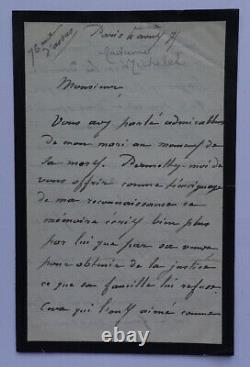 Paris 4 avril 7
Madame
Michelet
Monsieur
Vous avez parlé admirablem
de mon mari au moment de
sa mort. Permettez-moi de
vous offrir comme témoignage
de ma reconnaissance ce
mémoire écrit bien plus
par lui que par sa veuve
pour obtenir de la justice
ce que sa famille lui refuse.
Ceux qui l'ont aimé comme